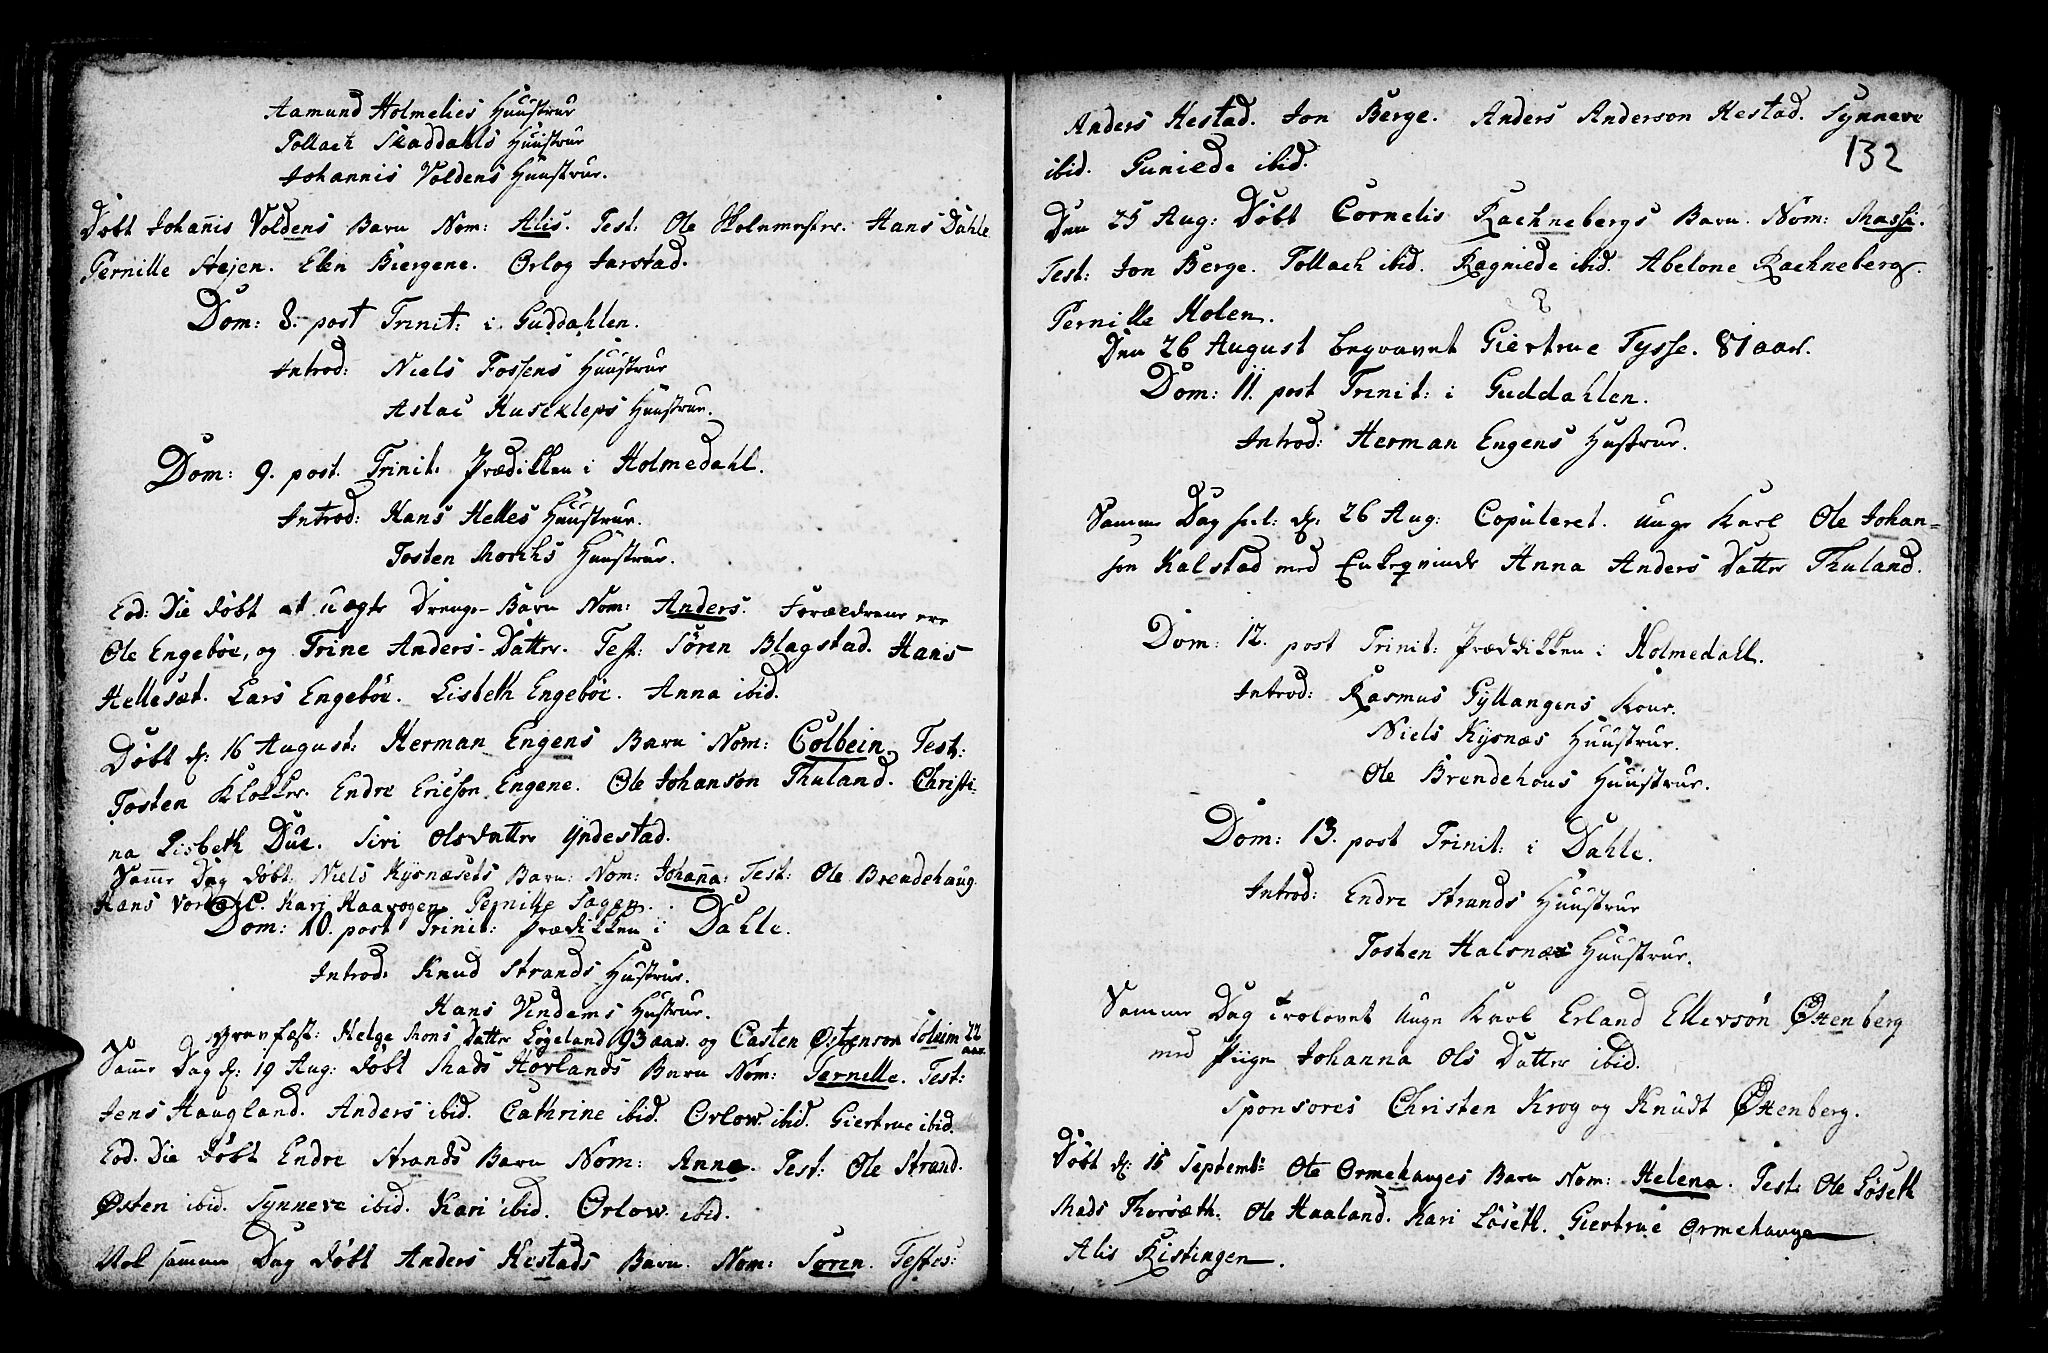 Aamund Holmelies Huustrue
Tollach Skaddahls Huustrue
Johannis Voldens Huustrue.
Døbt Johan̄is Voldens Barn Nom: Alis. Test: Ole Holmester. Hans Dahle
Pernille Stejen. Elen Biergene. Orlog Jarstad.
Dom: 8. post Trinit: i Guddahlen.
Introd: Niels Fossens Huustrue
Aslac Husekleps Huustrue.
Dom: 9. post. Trinit: Prædikken i Holmedahl.
Introd: Hans Helles Huustrue.
Tosten Morchs Huustrue.
Eod: Die døbt et uægte Drenge-Barn Nom: Anders. Forældrene ere
Ole Engebøe, og Trine Anders-Datter. Test: Søren Blagstad. Hans
Hellesæt. Lars Engebøe. Lisbeth Engebøe. Anna ibid.
Døbt d: 16 August: Herman Engens Barn Nom: Colbein. Test:
Tosten Klokker. Endre Ericson Engene. Ole Johanson Thuland. Christi-
na Lisbeth Due. Siri Olsdatter Yndestad.
Sam̄e Dag døbt. Niels Kyrnæsets Barn: Nom: Johan̄a: Test: Ole Brendehaug.
Hans Kari Haavogen Pernille Sagen.
Dom: 10. post Trinit: Prædikken i Dahle.
Introd: Knud Strands Hustrue.
Hans Vindems Hustrue.
Gravfæst: Helge Mons Datter Løgeland 93 aar. og Casten Østenson Soleim 22
aar.
Sam̄e Dag d: 19 Aug: døbt Mads Hovlands Barn Nom: Pernille. Test:
Jens Haugland. Anders ibid. Cathrine ibid. Orlow ibid. Giertrue ibid.
Eod. Die døbt Endre Strands Barn Nom: Anne. Test: Ole Strand.
Østen ibid. Synneve ibid. Kari ibid. Orlow ibid.
Nok samme Dag døbt Anders Hestads Barn. Nom: Søren. Testes:
Anders Hestad. Jon Berge. Anders Anderson Hestad. Synneve
132
ibid. Guniede ibid.
Den 25 Aug: Døbt Cornelis Rachnebergs Barn Nom: Massi.
Test: Jon Berge. Tollach ibid. Ragniede ibid. Abelone Rachneberg.
Pernille Holen.
Den 26 August begravet Giertrue Tysse. 81 aar.
Dom: 11. post Trinit: i Guddahlen.
Introd: Herman Engens Hustrue.
Samme Dag scil: d: 26 Aug: Copuleret. Unge Karl Ole Johan-
son Kalstad med Enkeqvinde Anna Anders Datter Thuland.
Dom: 12. post Trinit: Prædikken i Holmedahl.
Introd: Rasmus Gyllangens Kone.
Niels Kyrnæs Huustrue.
Ole Brendehous Huustrue.
Dom: 13. post Trinit: i Dahle.
Introd: Endre Strands Huustrue
Tosten Halsnæs Huustrue.
Samme Dag trolovet Unge Karl Erland Ellevsøn Øttenberg
med Piige Johanna Ols Datter ibid.
Sponsores Christen Krog og Knudt Øttenberg.
Døbt d: 15 Septemb: Ole Ormehauges Barn Nom: Helena. Test: Ole Løseth
Mads Thorsæth. Ole Haaland. Kari Løseth. Giertrue Ormehauge
Alis Ristingen.